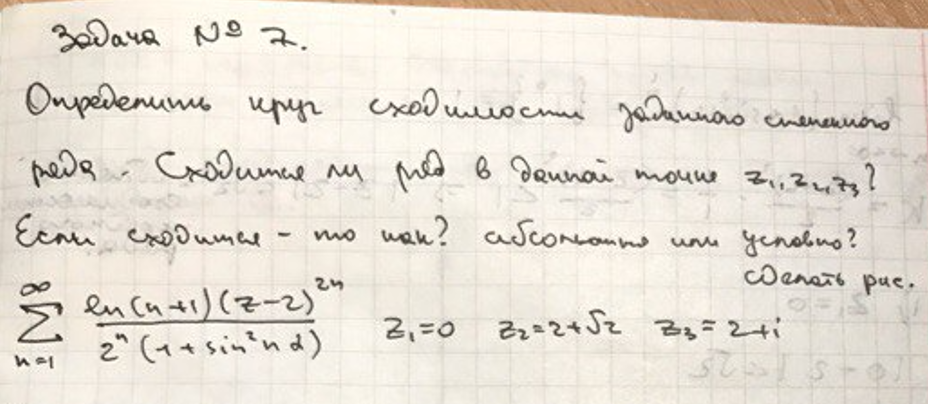 Задача № 7.
Определить круг сходимости заданного степенного
ряда. Сходится ли ряд в данной точке z₁, z₂, z₃?
Если сходится – то как? абсолютно или условно?
сделать рис.
∑_{n=1}^{∞} ln(n+1)(z-2)^{2n} / 2ⁿ(1+sin²nα) z₁=0 z₂=2+√2 z₃=2+i